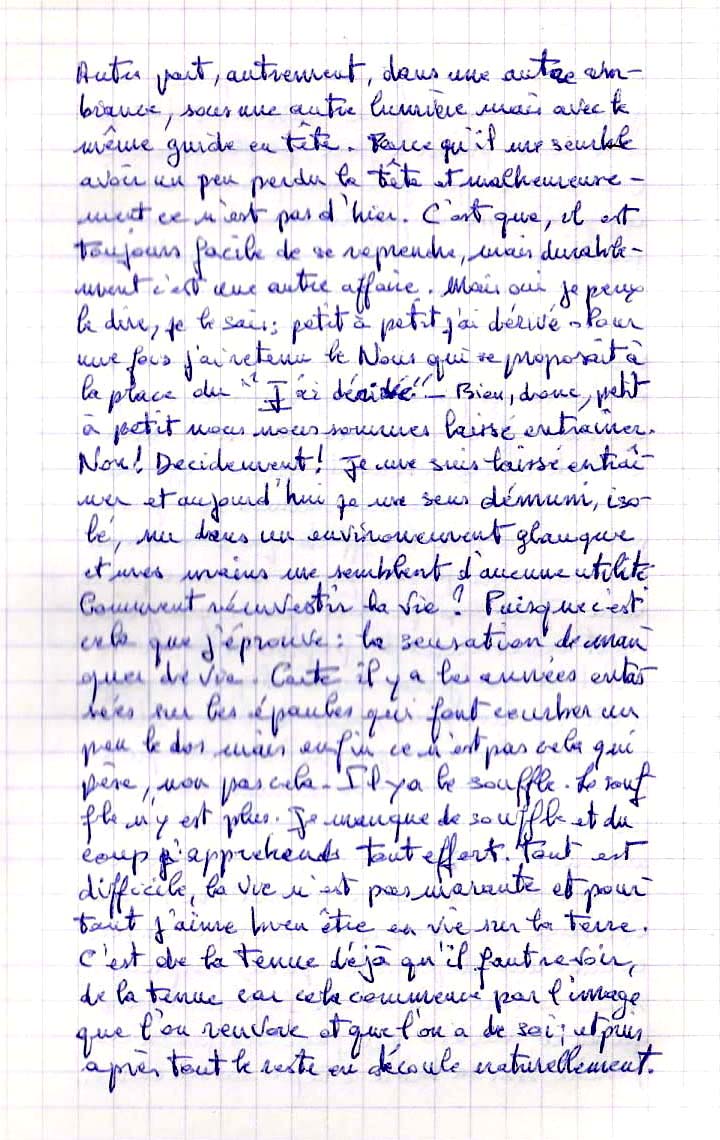 Autre part, autrement, dans une autre am-
biance, sous une autre lumière mais avec le
même guide en tête. Parce qu'il me semble
avoir un peu perdu la tête et malheureuse-
ment ce n'est pas d'hier. C'est que, il est
toujours facile de se reprendre, mais durable-
ment c'est une autre affaire. Mais oui je peux
le dire, je le sais ; petit à petit j'ai dérivé - Pour
une fois j'ai retenu le Nous qui se proposait à
la place du "J'ai dérivé" - Bien, donc, petit
à petit nous nous sommes laissé entraîner.
Non ! Decidemment ! Je me suis laissé entraî-
ner et aujourd'hui je me sens démuni, iso-
lé, nu dans un environnement glauque
et mes mains me semblent d'aucune utilité
Comment réinvestir la vie ? Puisque c'est
cela que j'éprouve : la sensation de man
quer de vie. Certe il y a les années entas
sées sur les épaules qui font courber un
peu le dos mais enfin ce n'est pas cela qui
pèse, non pas cela - Il y a le souffle. Le souf
fle n'y est plus. Je manque de souffle et du
coup j'apprehende tout effort. Tout est
difficile, la vie n'est pas marante et pour
tant j'aime bien être en vie sur la terre.
C'est de la tenue déjà qu'il faut revoir,
de la tenue car cela commence par l'image
que l'on renvoie et que l'on a de soi ; et puis
après tout le reste en découle naturellement.